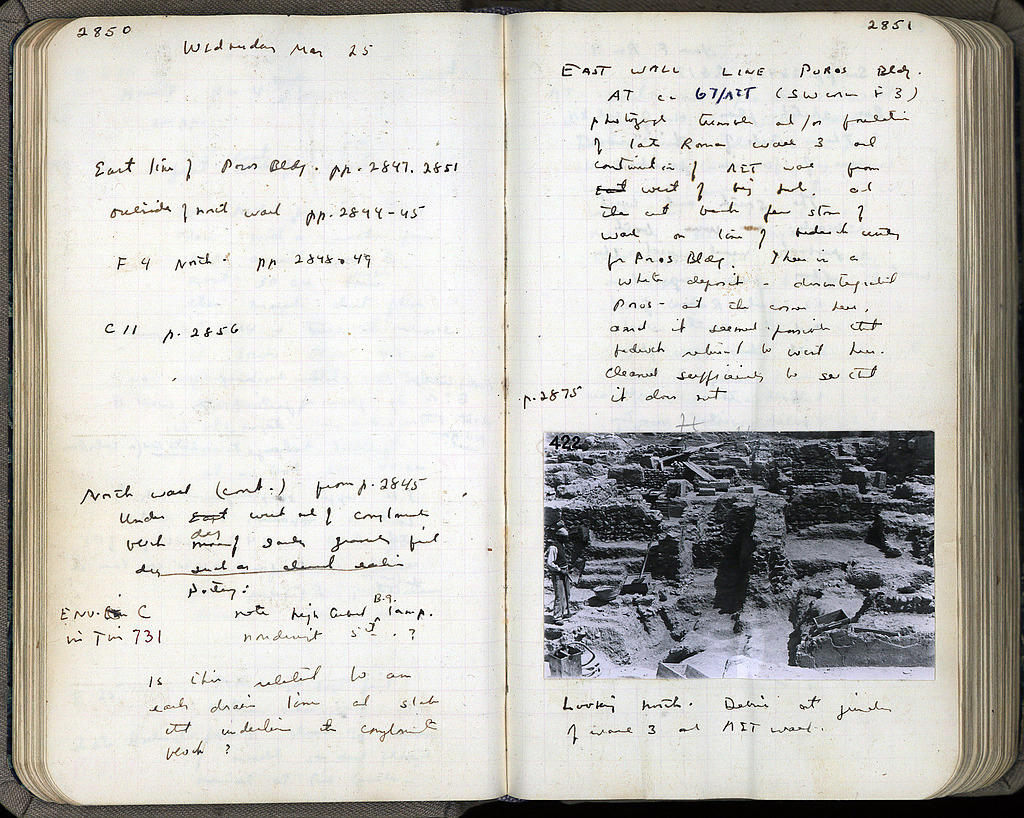 2850
Wednesday Mar 25
East line of Poros Bldg. pp. 2847, 2851
outside of north wall pp. 2844-45
F 4 North. pp 2848-49
C 11 p. 2856
North wall (cont.) from p. 2845
Under East west end of conglomerate
block dug sandy gravelly fill
dug such as cleaned earlier
Pottery:
ENV. C note high Curved B.g. lamp.
in Tin 731 nondescript 5th ?
Is this related to an
early drain line and slab
that underlie the conglomerate
block ?
2851
EAST WALL LINE POROS Bldg.
AT ca 67/ (SW corner F 3)
photograph and/or foundation
of late Roman wall 3 and
continuation of wall from
East west of big and
the cut few stones of
wall on line of bedrock cutting
for Poros Bldg. There is a
white deposit - disintegrated
Poros - at the corner here,
and it seemed possible that
bedrock returned to west here.
Cleaned sufficiently to see that
p. 2875 it does not
422
Looking north. Debris at junction
of wall 3 and wall.